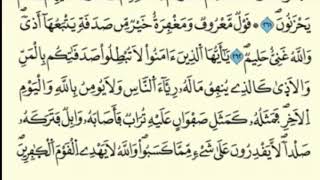 يَحْزَنُونَۖ ٢٦١ قَوْلٞ مَّعْرُوفٞ وَمَغْفِرَةٌ خَيْرٞ مِّن صَدَقَةٖ يَتْبَعُهَآ أَذٗىۖ
وَاللَّهُ غَنِيٌّ حَلِيمٞۖ ٢٦٢ يَٰٓأَيُّهَا اَلذِينَ ءَامَنُواْ لَا تُبْطِلُواْ صَدَقَٰتِكُم بِالْمَنِّ
وَالَاذ۪يٰ كَالذِے يُنفِقُ مَالَهُۥ رِئَآءَ اَلنَّاسِ وَلَا يُومِنُ بِاللَّهِ وَالْيَوْمِ
اِلَاخِرِۖ فَمَثَلُهُۥ كَمَثَلِ صَفْوَانٍ عَلَيْهِ تُرَابٞ فَأَصَابَهُۥ وَابِلٞ فَتَرَكَهُۥ
صَلْداٗۖ لَّا يَقْدِرُونَ عَلَىٰ شَےْءٖ مِّمَّا كَسَبُواْۖ وَاللَّهُ لَا يَهْدِے اِلْقَوْمَ اَلْكٰفِرِينَۖ